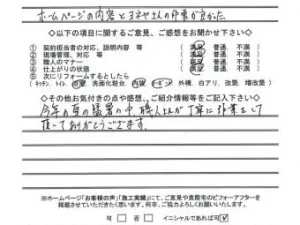 ホームページの内容とヨネヤさんの作業が良かった。
◇以下の項目に関するご意見、ご感想をお聞かせ下さい◇
① 契約担当者の対応、説明内容 等 (満足 普通 不満 )
② 現場管理、対応 等 (満足 普通 不満 )
③ 職人のマナー (満足 普通 不満 )
④ 仕上がりの状態 (満足 普通 不満 )
⑤ 次にリフォームするとしたら
(キッチン、トイレ、浴室、洗面化粧台、内装、オール電化、外構、白アリ、改築、増改築)
◇その他お気付きの点や感想、ご紹介情報等をご記入下さい◇
今年の夏の猛暑の中、職人さんが丁寧に作業をして
頂いてありがとうござます。
※ホームページ「お客様の声」「施工実績」にて、ご意見や貴殿宅のビフォーアフターを
掲載させていただきたく思います。何卒、ご協力よろしくお願いします。
可 否 イニシャルであれば可